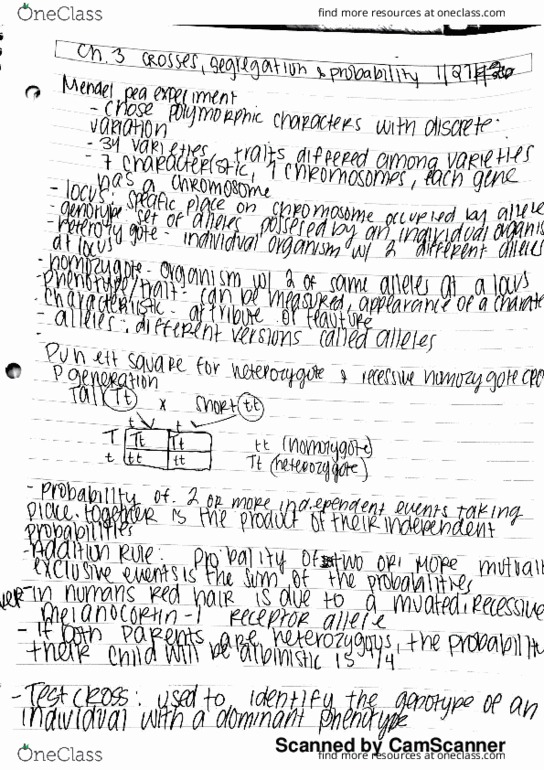 OneClass
find more resources at oneclass.com
Ch. 3 crosses, segregation & probability 1/27
Mendel pea experiment
- chose polymorphic characters with discrete
variation
- 34 varieties, traits differed among varieties
- 7 characteristic, 7 chromosomes, each gene
has a chromosome
- locus: specific place on chromosome occupied by allele
- genotype - set of alleles possesed by an individual organis
- heterozygote - individual organism w/ 2 different alleles
at locus
- homozygote - organism w/ 2 of same alleles at a locus
- phenotype/trait - can be measured, appearance of a characte
- characteristic - attribute or feauture
- alleles: different versions called alleles
-
Punett square for heterozygote & recessive homozygote cro
P generation
Tall Tt x short tt
t t
T Tt Tt tt (homozygote)
t tt tt Tt (heterozygote)
- probability of 2 or more independent events taking
place together is the product of their independent
probabilities
- Addition Rule: probality of two or more mutuall
exclusive events is the sum of the probabilities
- in humans red hair is due to a muated, recessive
melanocortin-1 receptor allele
- if both parents are heterozygous, the probabilit
their child will be albinistic is 1/4
- Test cross: used to identify the genotype of an
individual with a dominant phenotype
Scanned by CamScanner
OneClass
find more resources at oneclass.com